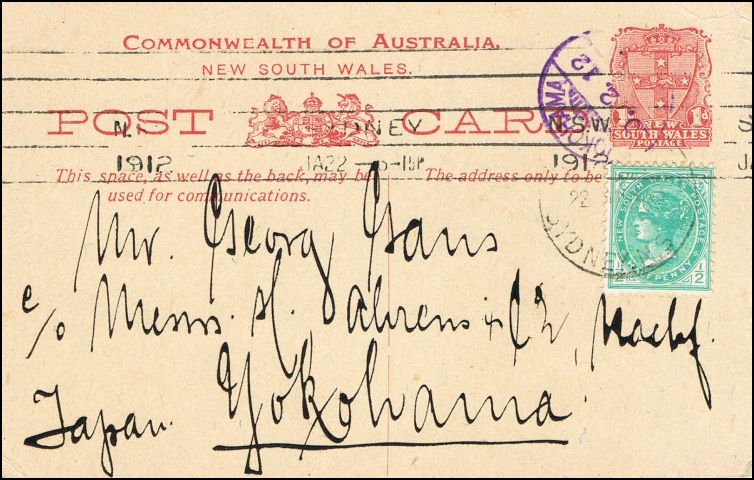 COMMONWEALTH OF AUSTRALIA.
NEW SOUTH WALES.
POST CARD
SYDNEY N.S.W.
1912 JA22 191
This space, as well as the back, may be
used for communications.
The address only to be
1d 1d
NEW
SOUTH WALES
POSTAGE
YOKOHAMA
12
NEW SOUTH WALES POSTAGE
HALFPENNY
1/2 1/2
22
SYDNEY
Mr. Georg Gans
c/o Messrs. H. Ahrens & Co, Nachf.
Japan. Yokohama.